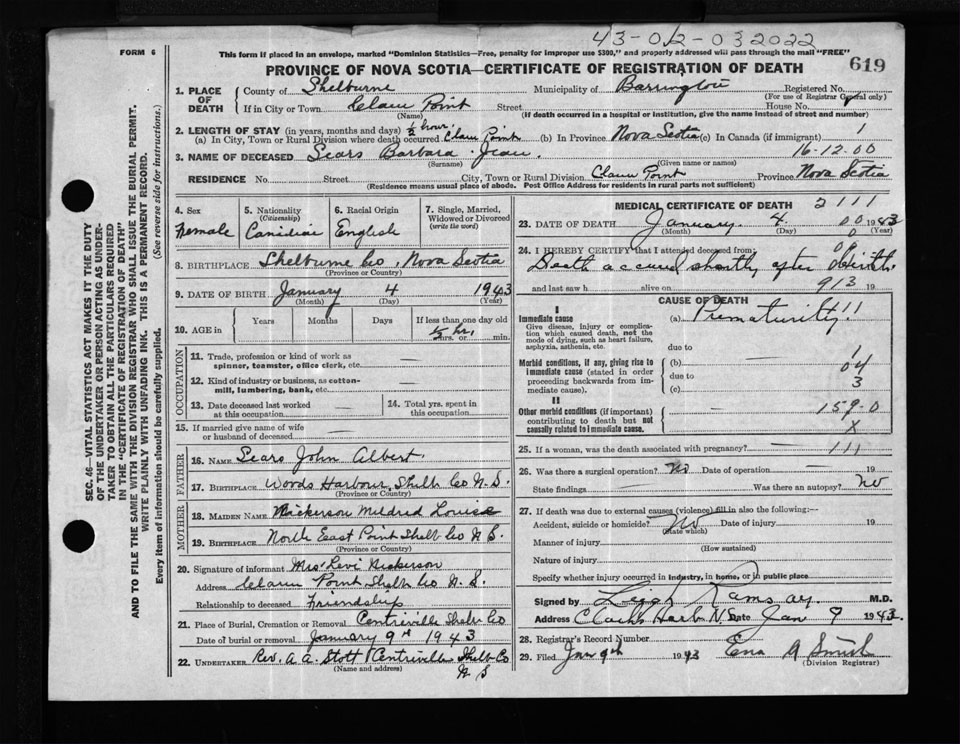 43-02-032022
FORM 6
This form if placed in an envelope, marked "Dominion Statistics—Free, penalty for improper use $300," and properly addressed will pass through the mail "FREE"
PROVINCE OF NOVA SCOTIA—CERTIFICATE OF REGISTRATION OF DEATH
619
SEC. 46—VITAL STATISTICS ACT MAKES IT THE DUTY
OF THE UNDERTAKER OR PERSON ACTING AS UNDER-
TAKER TO OBTAIN ALL THE PARTICULARS REQUIRED
IN THE "CERTIFICATE OF REGISTRATION OF DEATH"
AND TO FILE THE SAME WITH THE DIVISION REGISTRAR WHO SHALL ISSUE THE BURIAL PERMIT.
WRITE PLAINLY WITH UNFADING INK. THIS IS A PERMANENT RECORD.
Every item of information should be carefully supplied. (See reverse side for instructions.)
1. PLACE OF DEATH
County of Shelburne Municipality of Barrington Registered No.
(For use of Registrar General only)
If in City or Town Clam Point Street House No.
(Name) (If death occurred in a hospital or institution, give the name instead of street and number)
2. LENGTH OF STAY (in years, months and days) ½ hour
(a) In City, Town or Rural Division where death occurred Clam Point (b) In Province Nova Scotia (c) In Canada (if immigrant) 1
3. NAME OF DECEASED Sears Barbara Jean. 16-12-00
(Surname) (Given name or names)
RESIDENCE No. Street City, Town or Rural Division Clam Point Province Nova Scotia
(Residence means usual place of abode. Post Office Address for residents in rural parts not sufficient)
4. Sex
Female
5. Nationality
(Citizenship)
Canidian
6. Racial Origin
English
7. Single, Married,
Widowed or Divorced
(write the word)
8. BIRTHPLACE Shelburne Co, Nova Scotia
(Province or Country)
9. DATE OF BIRTH January 4 1943
(Month) (Day) (Year)
10. AGE in Years Months Days If less than one day old
½ hr.
hrs. or min.
OCCUPATION
11. Trade, profession or kind of work as
spinner, teamster, office clerk, etc. —
12. Kind of industry or business, as cotton-
mill, lumbering, bank, etc. —
13. Date deceased last worked
at this occupation —
14. Total yrs. spent in
this occupation —
15. If married give name of wife
or husband of deceased —
FATHER
16. Name Sears John Albert.
17. Birthplace Woods Harbour, Shelb Co N.S.
(Province or Country)
MOTHER
18. Maiden Name Nickerson Mildred Louise
19. Birthplace North East Point Shelb Co N S.
(Province or Country)
20. Signature of informant Mrs Levi Nickerson
Address Clam Point Shelb Co N.S.
Relationship to deceased Friendship
21. Place of Burial, Cremation or Removal Centreville Shelb Co
Date of burial or removal January 9th 1943
22. UNDERTAKER Rev. A A. Stott Centreville Shelb Co
(Name and address) N S
MEDICAL CERTIFICATE OF DEATH 2111
23. DATE OF DEATH January 4 00 1943
(Month) (Day) 0 (Year)
24. I HEREBY CERTIFY that I attended deceased from:
Death accured shortly after birth.
and last saw h alive on 913 19
CAUSE OF DEATH
I
Immediate cause
Give disease, injury or complica-
tion which caused death, not the
mode of dying, such as heart failure,
asphyxia, asthenia, etc.
(a) Prematurity 11
due to 1
Morbid conditions, if any, giving rise to
immediate cause (stated in order
proceeding backwards from im-
mediate cause).
(b) 04
due to 3
(c)
II
Other morbid conditions (if important)
contributing to death but not
causally related to immediate cause.
159-0
x
25. If a woman, was the death associated with pregnancy? 111
26. Was there a surgical operation? No Date of operation — 19
State findings Was there an autopsy? No
27. If death was due to external causes (violence) fill in also the following:—
Accident, suicide or homicide? No Date of injury 19
(State which)
Manner of injury
(How sustained)
Nature of injury
Specify whether injury occurred in industry, in home, or in public place
Signed by Leigh Ramsay. M.D.
Address Clarks Harb N.S. Date Jan 9 1943.
28. Registrar's Record Number
29. Filed Jan 9th 1943 Ena A Smith
(Division Registrar)